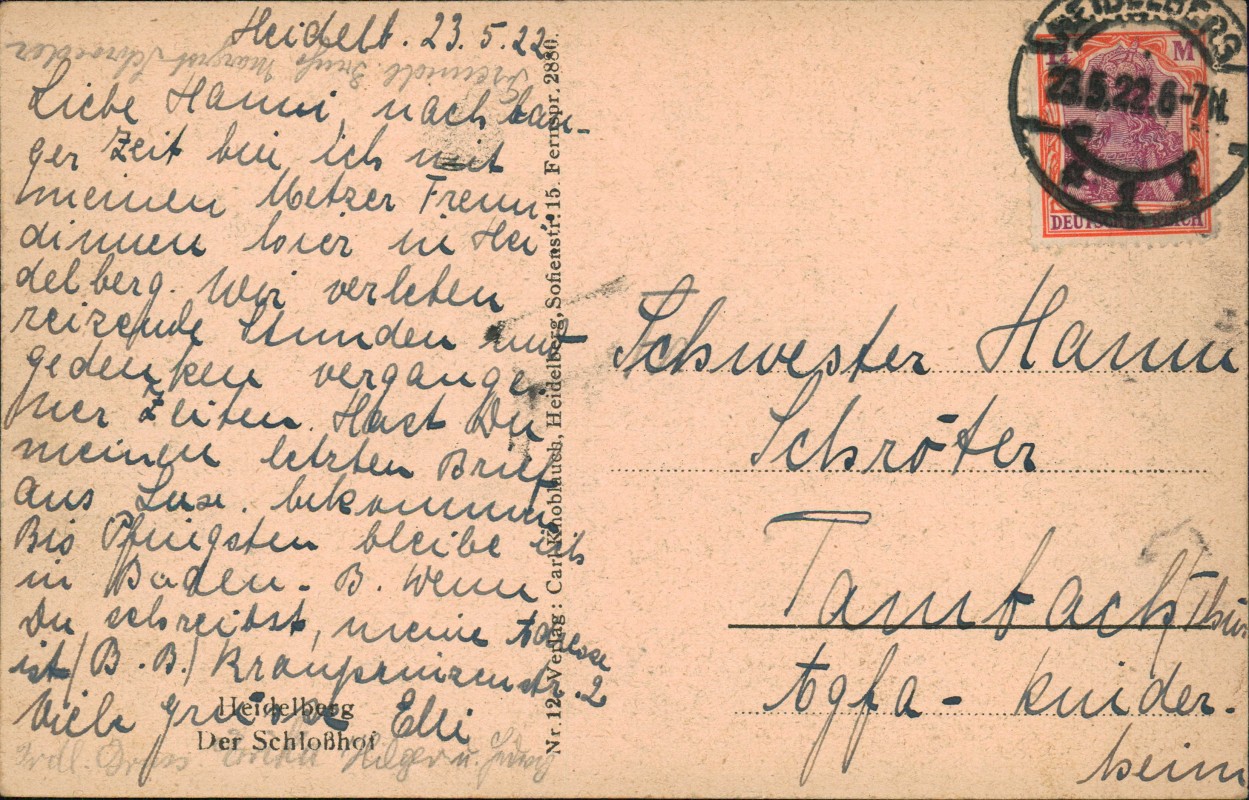 Heidelb. 23.5.22.
Freundl. Gruß Margret Schroeder
Liebe Hanni, nach lan-
ger Zeit bin ich mit
meinen Metzer Freun-
dinnen hier in Hei
delberg. Wir verleben
reizende Stunden und
gedenken vergange-
ner Zeiten. Hast Du
meinen letzten Brief
aus Lux. bekommen
Bis Pfingsten bleibe ich
in Baden-B. Wenn
Du schreibst, meine Adresse
ist (B.B.)
Viele Grüße Elli
Frdl. Gruß
Heidelberg
Der Schloßhof
Nr. 12. Verlag: Carl Knoblauch, Heidelberg, Sofienstr. 15. Fernspr. 2880.
HEIDELBERG
23.5.22.6-7N.
1
M
DEUTSCHES REICH
Schwester Hanni
Schröter
Tambach/Thür
Agfa-Kinder-
heim